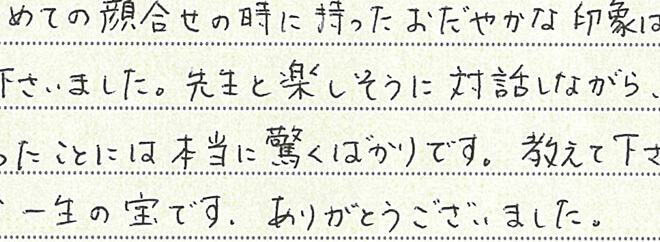 めての顔合せの時に持ったおだやかな印象は
下さいました。先生と楽しそうに対話しながら、
ったことには本当に驚くばかりです。教えて下さ
一生の宝です。ありがとうございました。